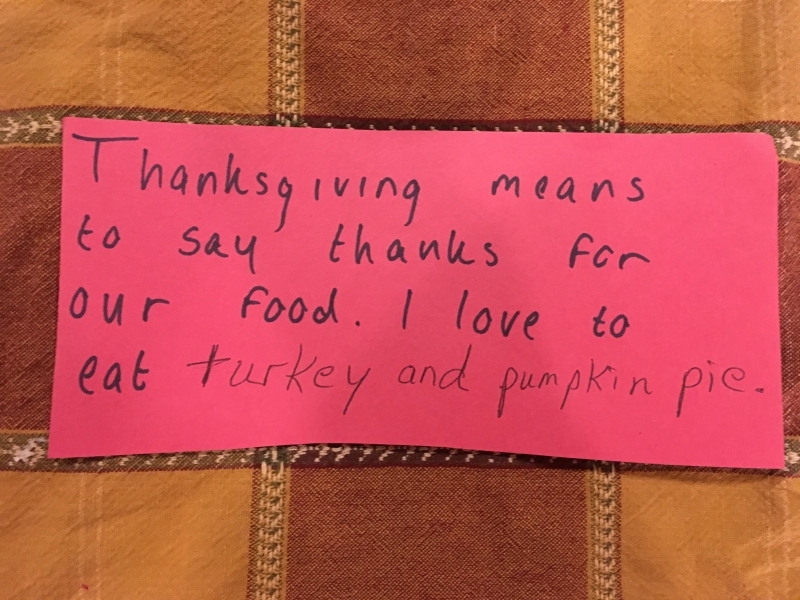 Thanksgiving means
to say thanks for
our food. I love to
eat turkey and pumpkin pie.